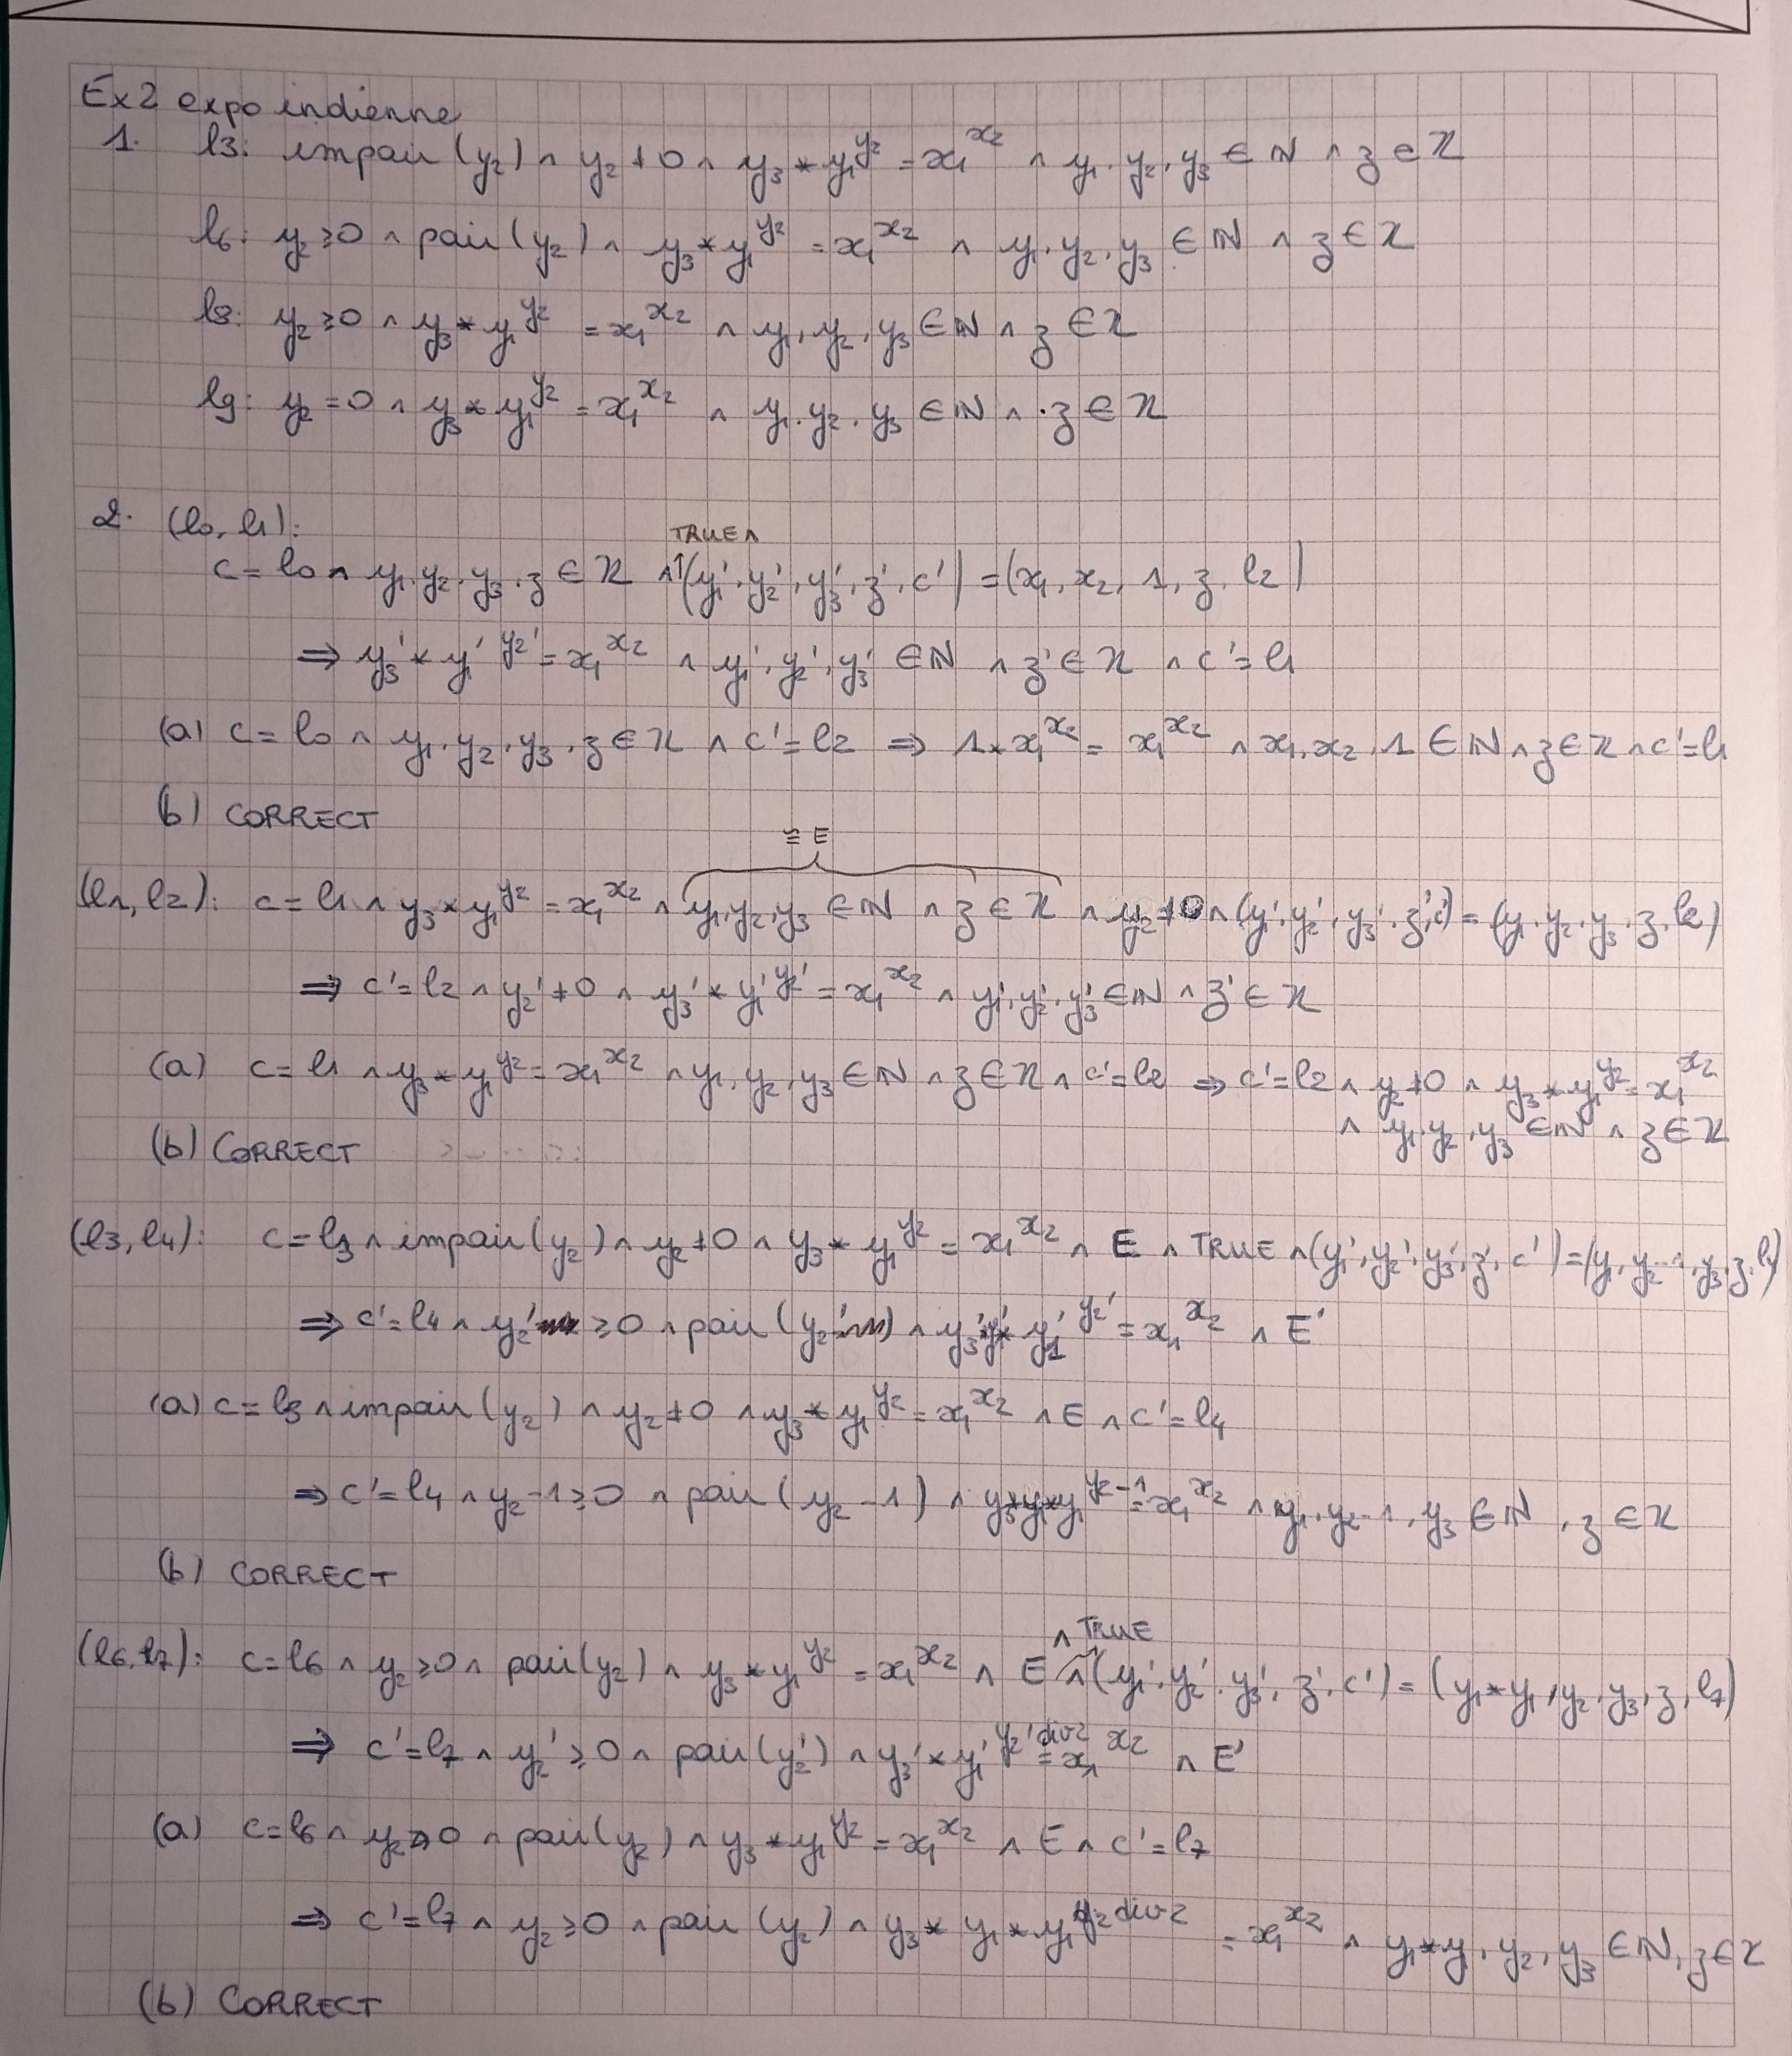 Ex2 expo indienne
1. l3: impair(y₂) ∧ y₂ ≠ 0 ∧ y₃ * y₁^y₂ = x₁^x₂ ∧ y₁, y₂, y₃ ∈ ℕ ∧ z ∈ ℤ
l6: y₂ ≥ 0 ∧ pair(y₂) ∧ y₃ * y₁^y₂ = x₁^x₂ ∧ y₁, y₂, y₃ ∈ ℕ ∧ z ∈ ℤ
l8: y₂ ≥ 0 ∧ y₃ * y₁^y₂ = x₁^x₂ ∧ y₁, y₂, y₃ ∈ ℕ ∧ z ∈ ℤ
l9: y₂ = 0 ∧ y₃ * y₁^y₂ = x₁^x₂ ∧ y₁, y₂, y₃ ∈ ℕ ∧ z ∈ ℤ
2. (l0, l1):
TRUE ∧
c = l0 ∧ y₁, y₂, y₃, z ∈ ℤ ∧ (y₁', y₂', y₃', z', c') = (x₁, x₂, 1, z, l2)
⇒ y₃' * y₁'^y₂' = x₁^x₂ ∧ y₁', y₂', y₃' ∈ ℕ ∧ z' ∈ ℤ ∧ c' = l1
(a) c = l0 ∧ y₁, y₂, y₃, z ∈ ℤ ∧ c' = l2 ⇒ 1 * x₁^x₂ = x₁^x₂ ∧ x₁, x₂, 1 ∈ ℕ ∧ z ∈ ℤ ∧ c' = l1
(b) CORRECT
≅ E
(l1, l2): c = l1 ∧ y₃ * y₁^y₂ = x₁^x₂ ∧ y₁, y₂, y₃ ∈ ℕ ∧ z ∈ ℤ ∧ y₂ ≠ 0 ∧ (y₁', y₂', y₃', z', c') = (y₁, y₂, y₃, z, l2)
⇒ c' = l2 ∧ y₂' ≠ 0 ∧ y₃' * y₁'^y₂' = x₁^x₂ ∧ y₁', y₂', y₃' ∈ ℕ ∧ z' ∈ ℤ
(a) c = l1 ∧ y₃ * y₁^y₂ = x₁^x₂ ∧ y₁, y₂, y₃ ∈ ℕ ∧ z ∈ ℤ ∧ c' = l2 ⇒ c' = l2 ∧ y₂ ≠ 0 ∧ y₃ * y₁^y₂ = x₁^x₂
∧ y₁, y₂, y₃ ∈ ℕ ∧ z ∈ ℤ
(b) CORRECT
(l3, l4): c = l3 ∧ impair(y₂) ∧ y₂ ≠ 0 ∧ y₃ * y₁^y₂ = x₁^x₂ ∧ E ∧ TRUE ∧ (y₁', y₂', y₃', z', c') = (y₁, y₂-1, y₃, z, l4)
⇒ c' = l4 ∧ y₂' ≥ 0 ∧ pair(y₂') ∧ y₃' * y₁' * y₁'^y₂' = x₁^x₂ ∧ E'
(a) c = l3 ∧ impair(y₂) ∧ y₂ ≠ 0 ∧ y₃ * y₁^y₂ = x₁^x₂ ∧ E ∧ c' = l4
⇒ c' = l4 ∧ y₂-1 ≥ 0 ∧ pair(y₂-1) ∧ y₃ * y₁ * y₁^y₂-1 = x₁^x₂ ∧ y₁, y₂-1, y₃ ∈ ℕ, z ∈ ℤ
(b) CORRECT
∧ TRUE
(l6, l7): c = l6 ∧ y₂ ≥ 0 ∧ pair(y₂) ∧ y₃ * y₁^y₂ = x₁^x₂ ∧ E ∧ (y₁', y₂', y₃', z', c') = (y₁*y₁, y₂, y₃, z, l7)
⇒ c' = l7 ∧ y₂' ≥ 0 ∧ pair(y₂') ∧ y₃' * y₁'^y₂' div 2 = x₁^x₂ ∧ E'
(a) c = l6 ∧ y₂ ≥ 0 ∧ pair(y₂) ∧ y₃ * y₁^y₂ = x₁^x₂ ∧ E ∧ c' = l7
⇒ c' = l7 ∧ y₂ ≥ 0 ∧ pair(y₂) ∧ y₃ * y₁ * y₁^y₂ div 2 = x₁^x₂ ∧ y₁*y₁, y₂, y₃ ∈ ℕ, z ∈ ℤ
(b) CORRECT